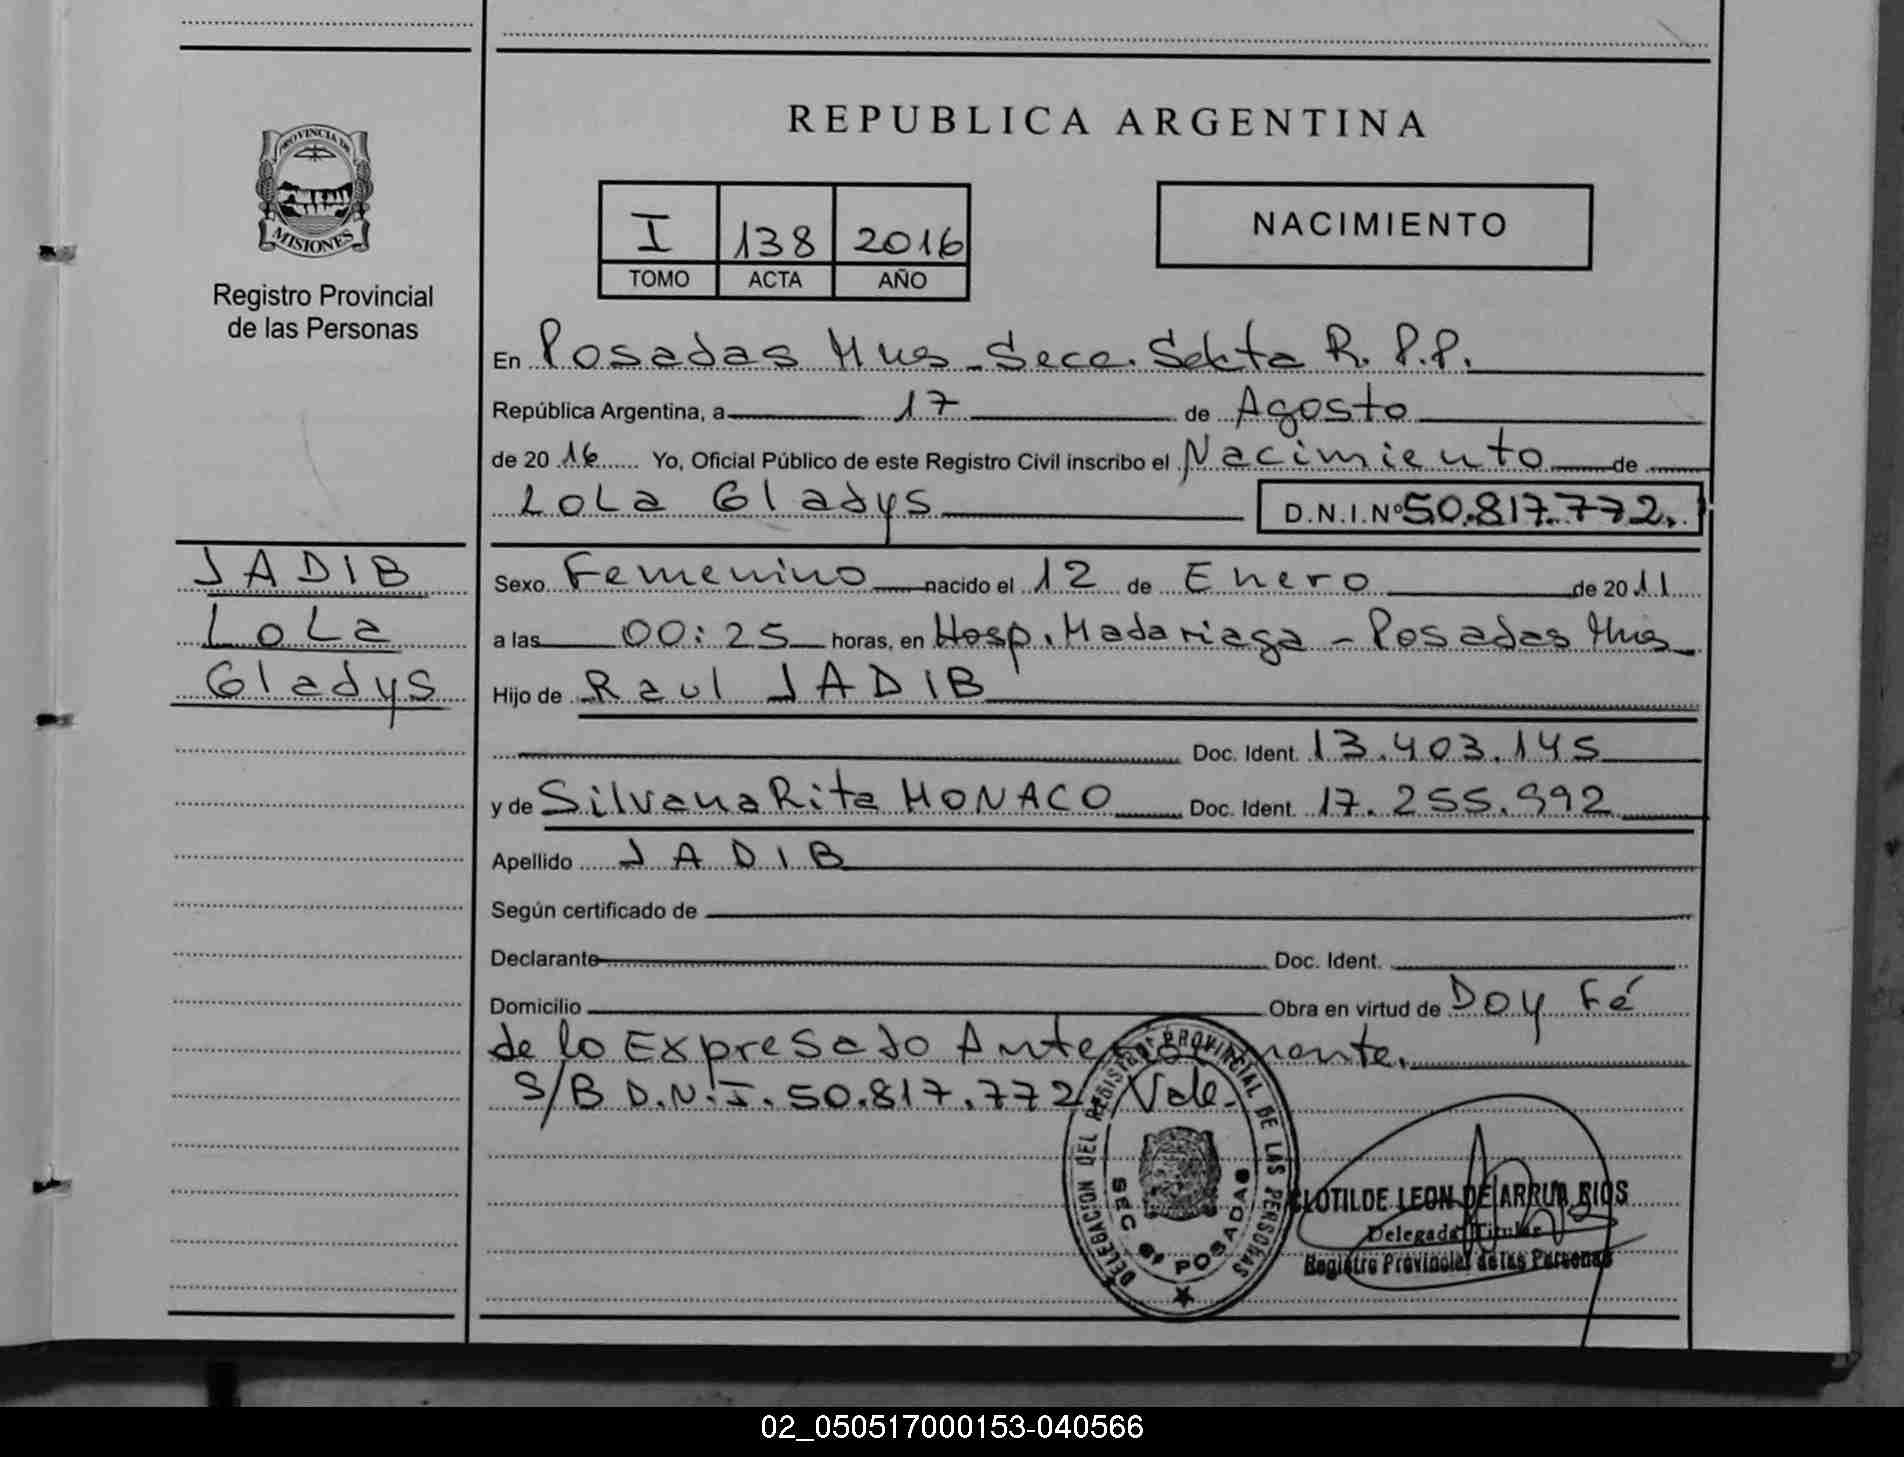 PROVINCIA DE
MISIONES
Registro Provincial
de las Personas
JADIB
LoLa
Gladys
REPUBLICA ARGENTINA
I 138 2016
TOMO ACTA AÑO
NACIMIENTO
En Posadas Mns - Secc. Sexta R.P.P.
República Argentina, a 17 de Agosto
de 20 16 Yo, Oficial Público de este Registro Civil inscribo el Nacimiento de
LoLa Gladys D.N.I.Nº 50.817.772.
Sexo Femenino nacido el 12 de Enero de 20 11
a las 00:25 horas, en Hosp. Madariaga - Posadas Mns
Hijo de Raul JADIB
Doc. Ident. 13.403.145
y de Silvana Rita MONACO Doc. Ident. 17.255.992
Apellido JADIB
Según certificado de
Declarante Doc. Ident.
Domicilio Obra en virtud de Doy Fé
de lo Expresado Anteriormente.
S/B D.N.I. 50.817.772 Vale.
DELEGACION DEL REGISTRO PROVINCIAL DE LAS PERSONAS
SEC. 6ª POSADAS
CLOTILDE LEON DE ARRUA RIOS
Delegada Titular
Registro Provincial de las Personas
02_050517000153-040566